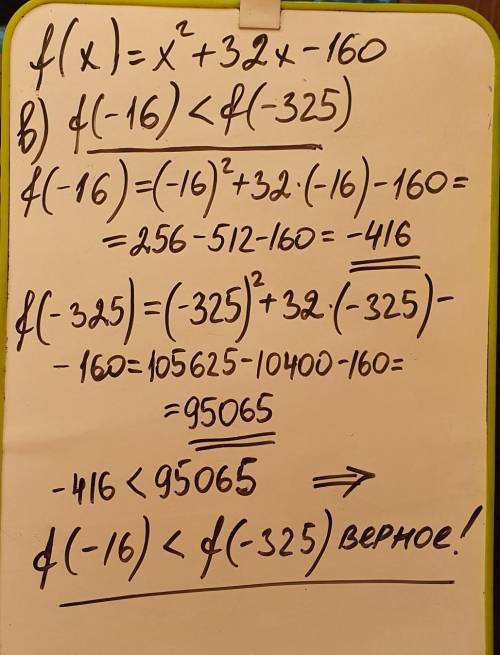 f(x)=x²+32x-160
в) f(-16)<f(-325)
f(-16)=(-16)²+32·(-16)-160=
=256-512-160=-416
f(-325)=(-325)²+32·(-325)-
-160=105625-10400-160=
=95065
-416<95065 ⇒
f(-16)<f(-325) верное!